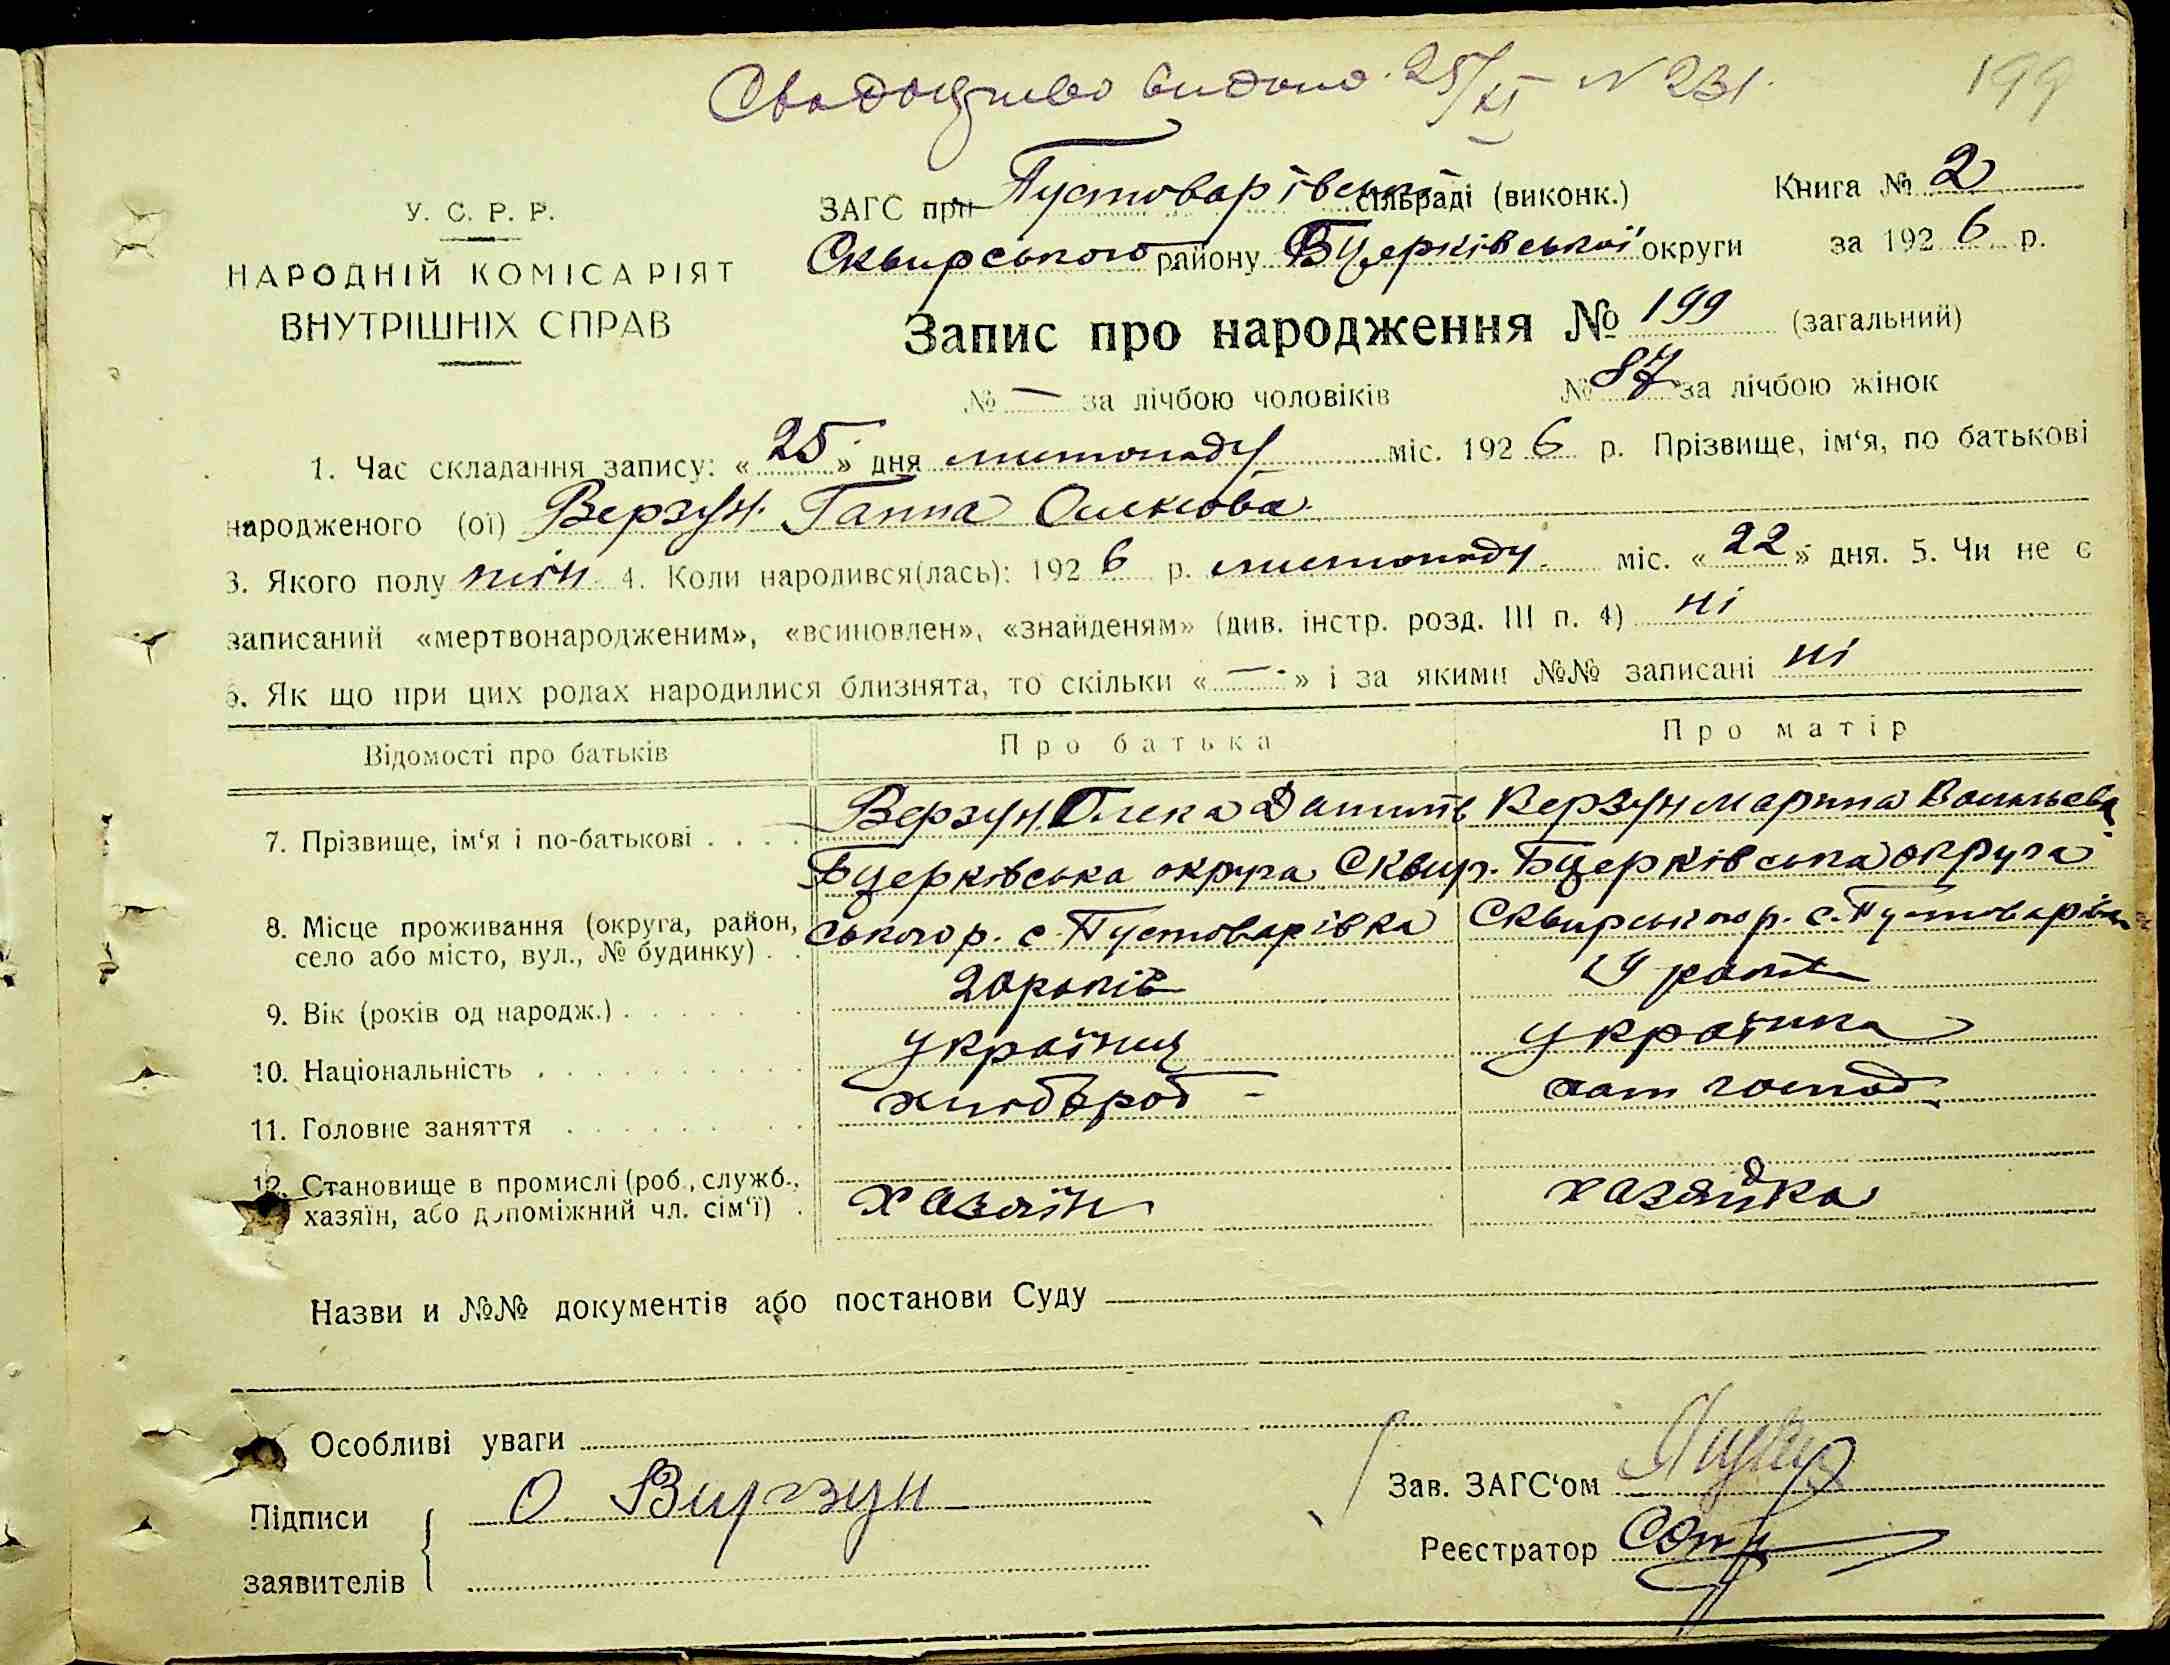 Свидоцтво видано 25/XI N 231.
199
У. С. Р. Р.
НАРОДНІЙ КОМІСАРІЯТ
ВНУТРІШНІХ СПРАВ
ЗАГС при Пустоварівськ. сільраді (виконк.) Книга № 2
Сквирського району Бцерківської округи за 1926 р.
Запис про народження № 199 (загальний)
№ — за лічбою чоловіків № 87 за лічбою жінок
1. Час складання запису: «25» дня листопаду міс. 1926 р. Прізвище, ім‘я, по батькові
народженого (ої) Верзун Ганна Олекова
3. Якого полу жін. 4. Коли народився(лась): 1926 р. листопаду міс. «22» дня. 5. Чи не є
записаний «мертвонародженим», «всиновлен», «знайденям» (див. інстр. розд. III п. 4) ні
6. Як що при цих родах народилися близнята, то скільки «—» і за якими №№ записані ні
Відомості про батьків Про батька Про матір
7. Прізвище, ім‘я і по-батькові . . . . Верзун Олека Данилів Верзун Марина Васильева
Бцерківська округа Сквир. Бцерківська округа
8. Місце проживання (округа, район, ського р. с. Пустоварівка Сквирського р. с. Пустоварівка
село або місто, вул., № будинку) . .
9. Вік (років од народж.) . . . . . . 20 років років
10. Національність . . . . . . . . . . українец українка
11. Головне заняття . . . . . . . . хлібороб - хат господ.
12. Становище в промислі (роб., служб., хазяїн хазяйка
хазяїн, або допоміжний чл. сім‘ї) .
Назви и №№ документів або постанови Суду
Особливі уваги
Підписи О Вирзун
заявителів
Зав. ЗАГС‘ом
Реєстратор